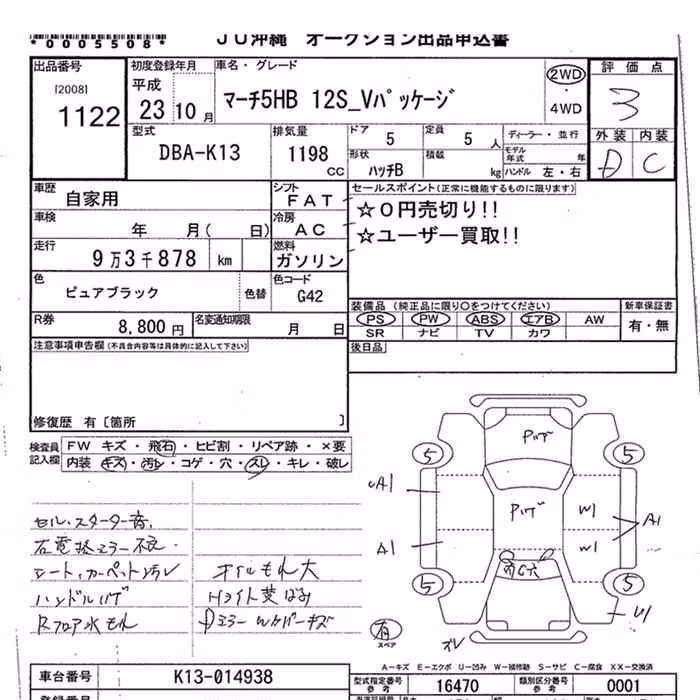 *0005508*
JU沖縄 オークション出品申込書
出品番号
[2008]
1122
初度登録年月
平成
23 10 月
車名・グレード
マーチ5HB 12S_Vパッケージ
2WD
・
4WD
評価点
3
外装 内装
D C
型式
DBA-K13
排気量
1198
CC
ドア 5
定員 5 人
形状 ハッチB
積載 kg
ディーラー・並行
モデル年式 年
ハンドル 左・右
車歴
自家用
シフト
FAT
車検
年 月( 日)
冷房
AC
走行
9万3千878 km
燃料
ガソリン
色
ピュアブラック
色替
色コード
G42
R券
8,800 円
名変通知期限
月 日
セールスポイント(正常に機能するものに限ります)
☆0円売切り!!
☆ユーザー買取!!
装備品 (純正品に限り○をつけてください)
PS PW ABS エアB AW
SR ナビ TV カワ
新車保証書
有・無
後日品
注意事項申告欄(不具合内容等は具体的に記入して下さい)
修復歴 有〔箇所 〕
検査員記入欄
FW キズ・飛石・ヒビ割・リペア跡・×要
内装 キズ・汚レ・コゲ・穴・スレ・キレ・破レ
セル・スターター音、
右電格ミラー不良・
シート、カーペット汚レ
ハンドルハゲ
Rフロア水もれ
オイルもれ大
Hライト黄ばみ
Dミラーwカバーキズ
5 5
5 5
A1
A1
W1
W1
A1
U1
有
スペア
ズレ
A-キズ E-エクボ U-凹み W-補修跡 S-サビ C-腐食 XX-交換済
車台番号
K13-014938
型式指定番号
参考
16470
類別区分番号
参考
0001